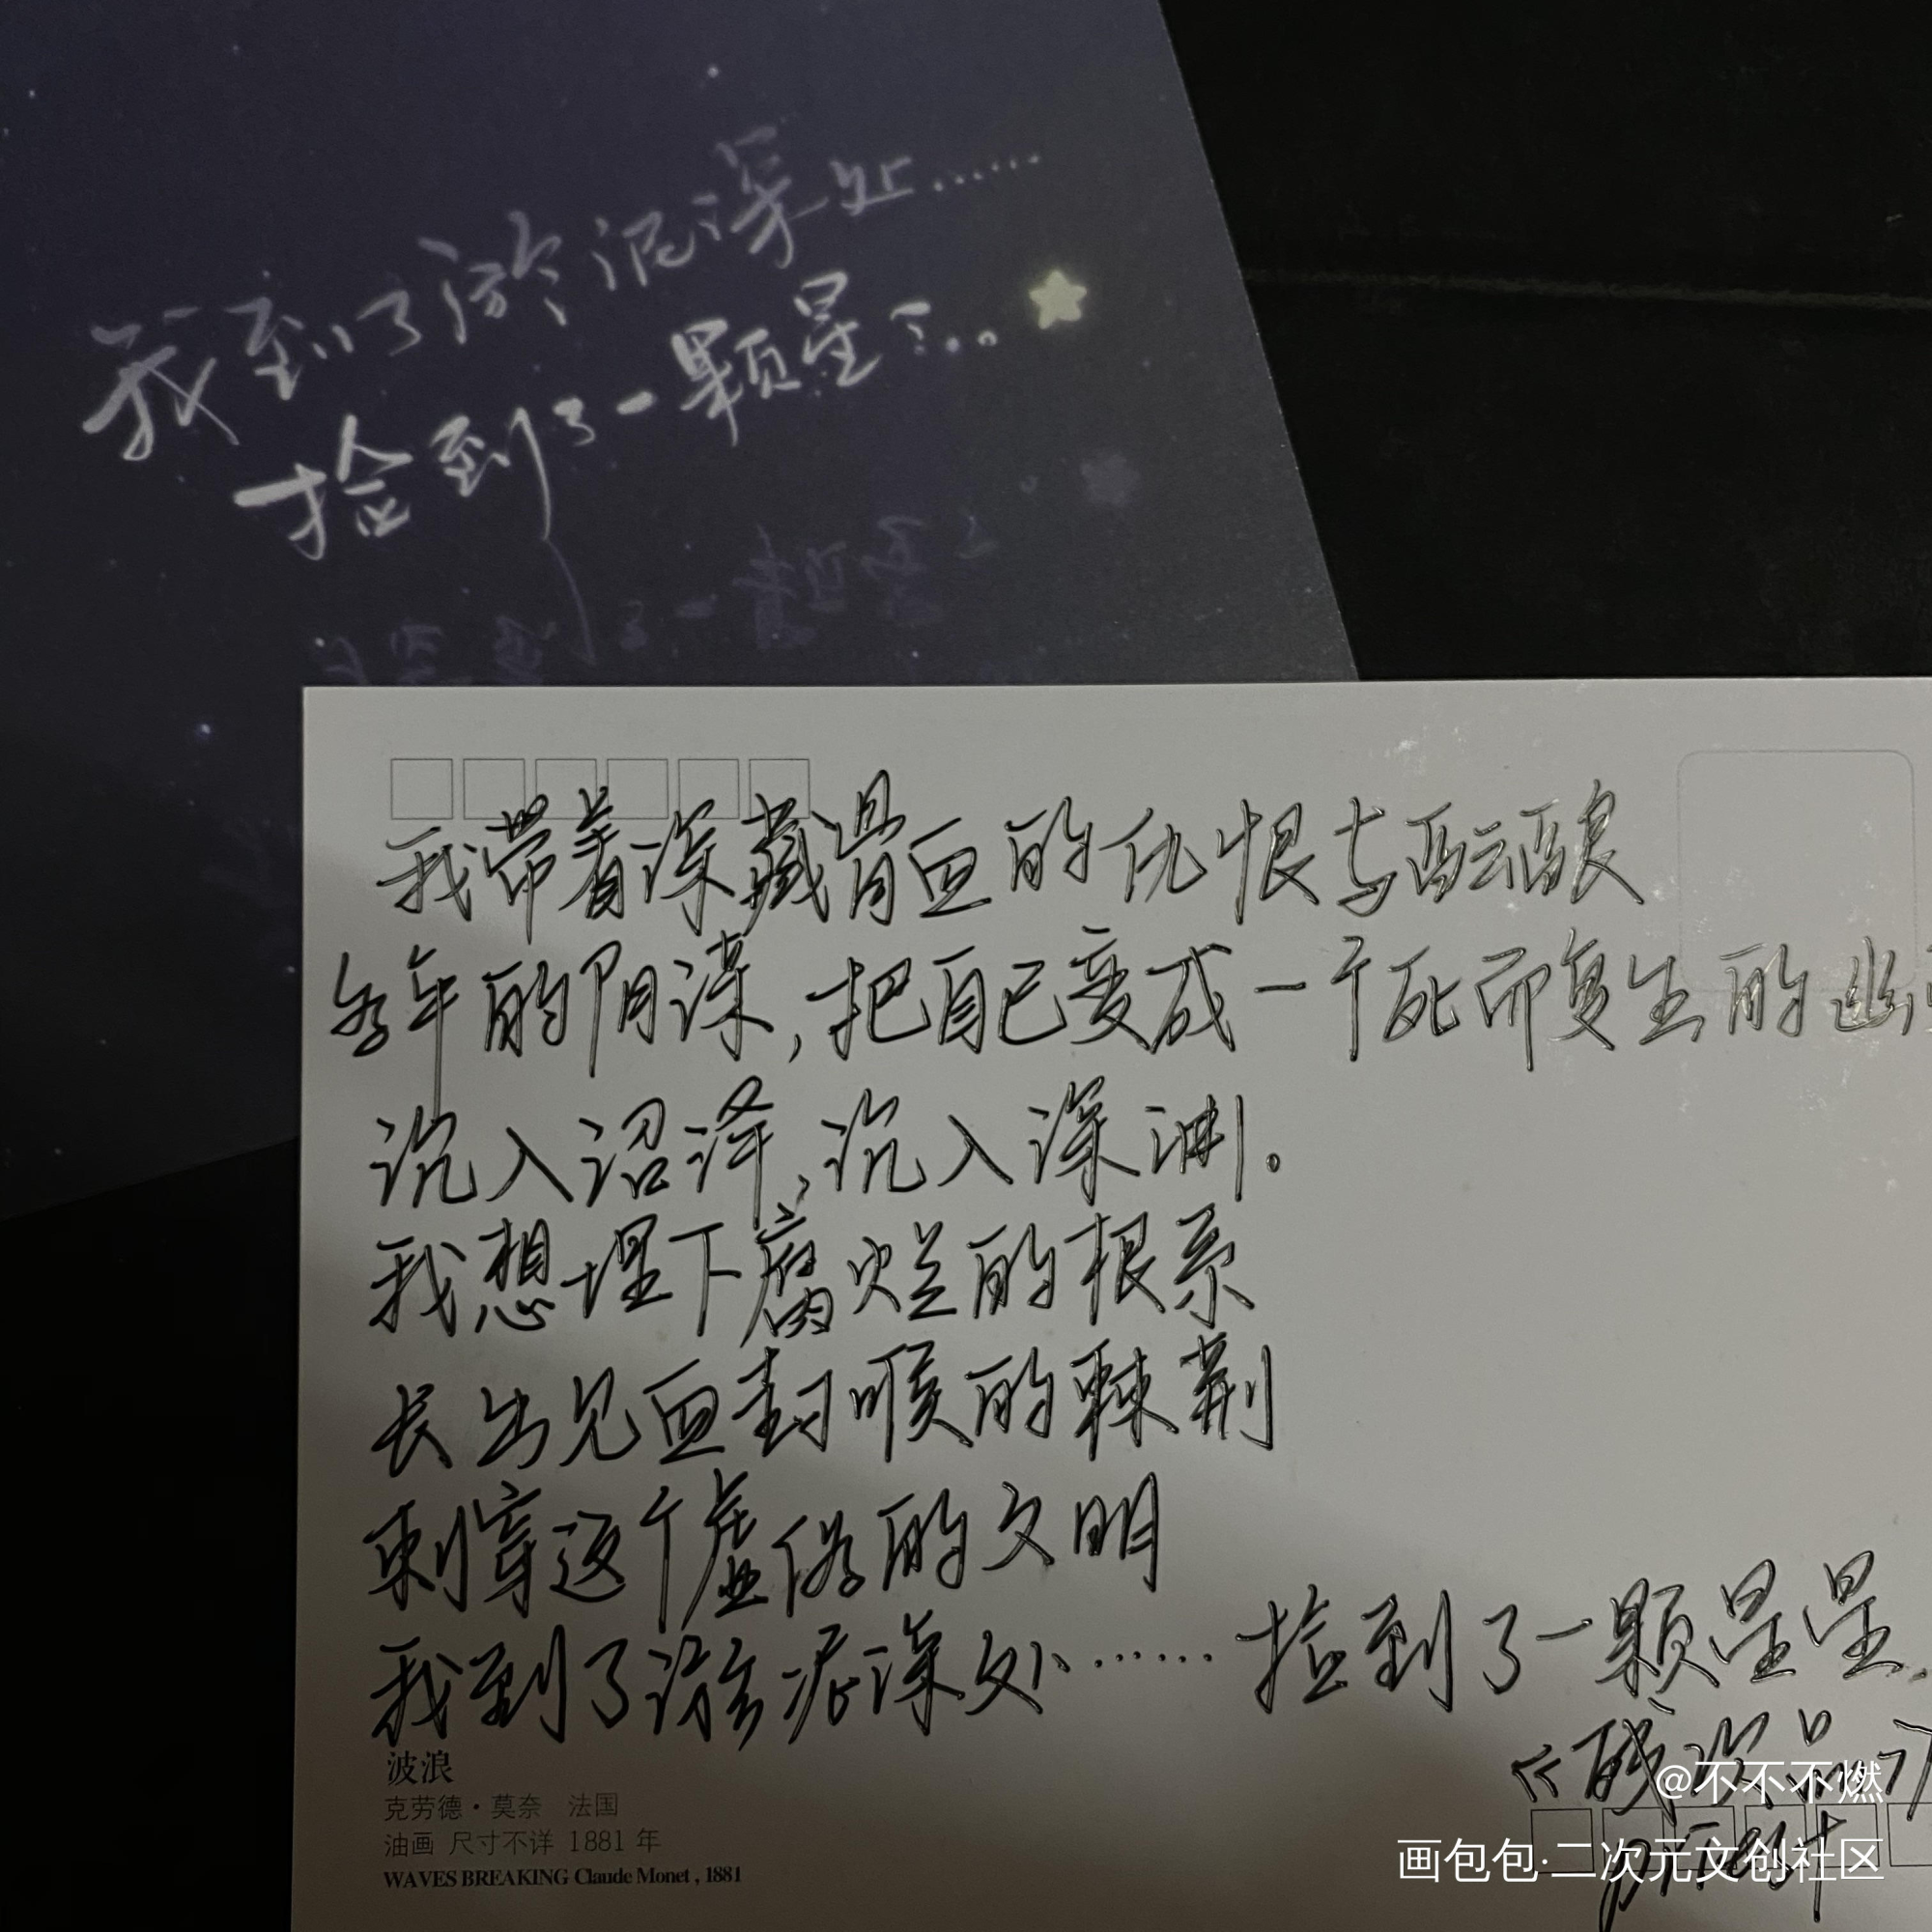 我到了淤泥深处……
捡到了一颗星星。
我带着深藏骨血的仇恨与酝酿
多年的阴谋,把自己变成一个死而复生的幽
沉入沼泽,沉入深渊.
我想埋下腐烂的根系
长出见血封喉的棘荆
刺穿这个虚伪的文明
我到了淤泥深处……捡到了一颗星星.
《残次品》
priest
波浪
克劳德·莫奈 法国
油画 尺寸不详 1881 年
WAVES BREAKING Claude Monet , 1881
@不不不燃
画包包·二次元文创社区